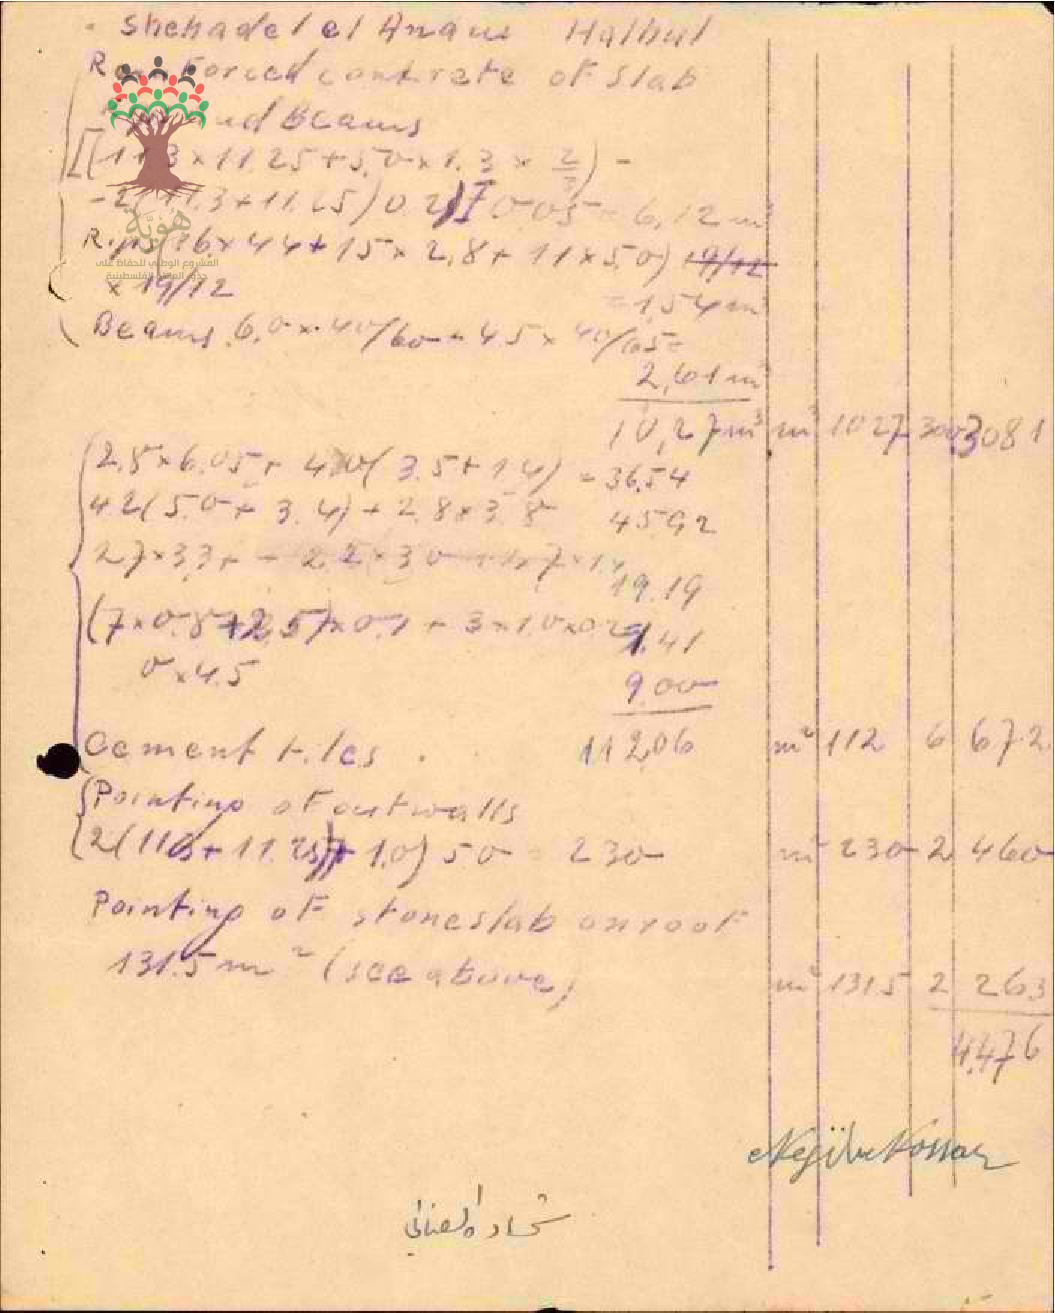 Shehade el Anani Halhul
Reinforced concrete of Slab
and Beams
[(11.3×11.25+5.0×1.3× 2/3) -
-2(11.3+11.25) 0.2)] 0.05 = 6,12 m³
هويّة
Rips (36×44+15×2,8+11×50)
المشروع الوطني للحفاظ على
جذور العائلة الفلسطينية
×19/12 =1,54 m³
Beams 6,0×40/60+4.5×40/65=
2,61 m³
10,27 m³ m³ 1027 300 3081
2.8×6.05+4.0(3.5+1.4) = 36.54
42(5.0+3.4)+2.8×3.8 45.92
27×33+
19.19
(7×0.8+2.5)×0.1+3×1.0×0.2= 1.41
0×4.5
9.00
Cement tiles. 112,06 m² 112 6 672
Pointing of outwalls
2(11.3+11.25)+1.0) 50 = 230 m² 230 2 460
Pointing of stoneslab on roof
131.5 m² (see above) m² 131.5 2 263
4,476
شحادة العناني